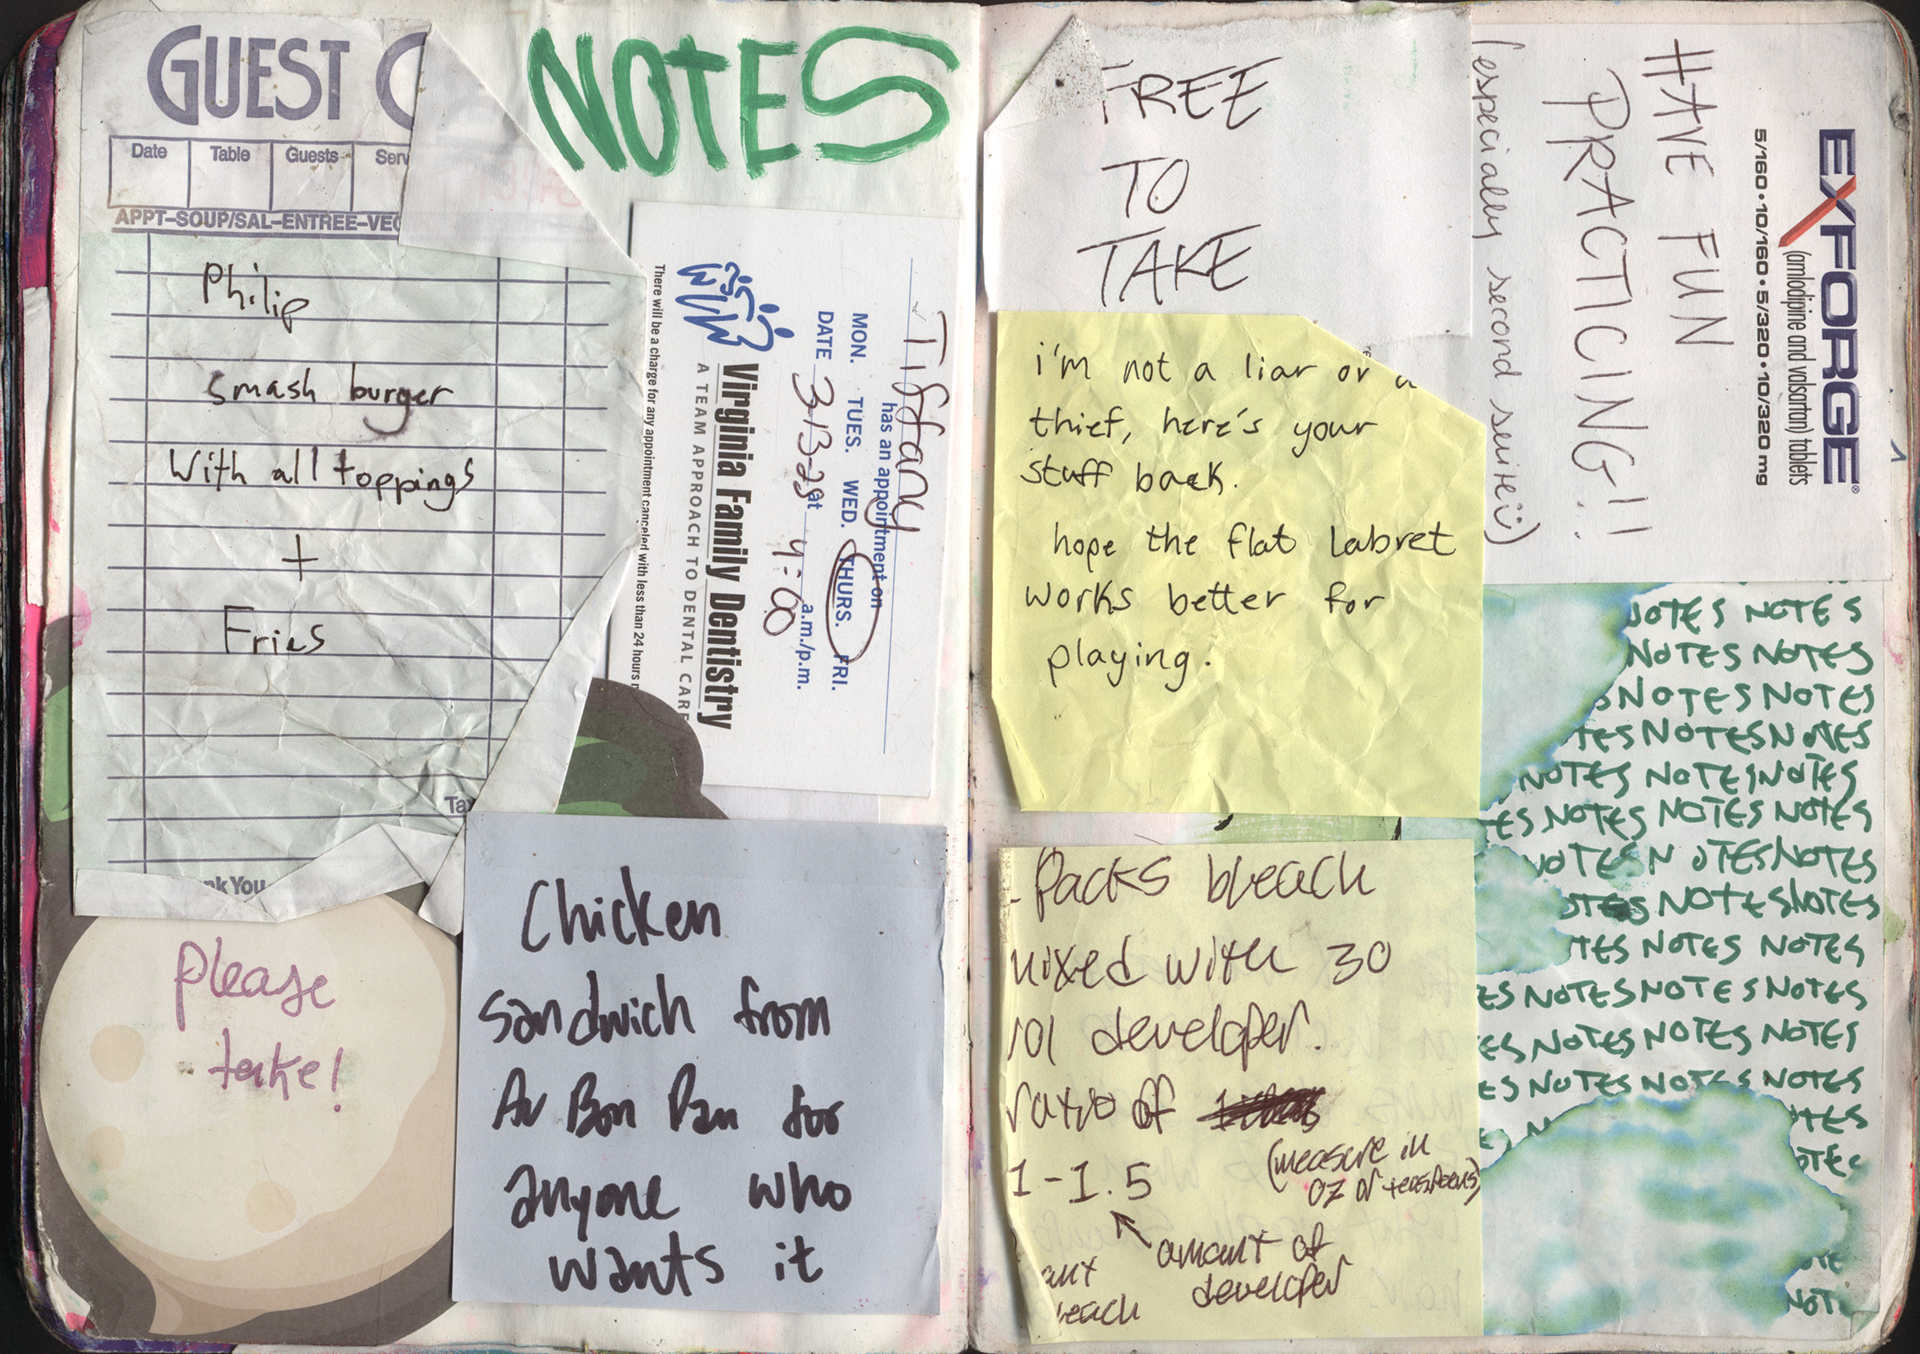 GUEST C
Date Table Guests Serv
APPT–SOUP/SAL–ENTREE–VEG
Philip
smash burger
with all toppings
+
Fries
Tax
nk You
NOTES
Tiffany
has an appointment on
MON. TUES. WED. THURS. FRI.
DATE 3-13-25 at 4:00 a.m./p.m.
Virginia Family Dentistry
A TEAM APPROACH TO DENTAL CARE
There will be a charge for any appointment canceled with less than 24 hours n
please
take!
Chicken
sandwich from
Au Bon Pan for
anyone who
wants it
FREE
TO
TAKE
HAVE FUN
PRACTICING!!
(especially second suite :))
EXFORGE®
(amlodipine and valsartan) tablets
5/160 • 10/160 • 5/320 • 10/320 mg
i'm not a liar or a
thief, here's your
stuff back.
hope the flat labret
works better for
playing.
- Packs bleach
mixed with 30
vol developer.
ratio of
1-1.5
(measure in
oz or teaspoons)
amount of
developer
amt
bleach
NOTES NOTES
NOTES NOTES
NOTES NOTES
TES NOTES NOTES
NOTES NOTES NOTES
ES NOTES NOTES NOTES
NOTES NOTES NOTES
OTES NOTES NOTES
TES NOTES NOTES
ES NOTES NOTES NOTES
ES NOTES NOTES NOTES
ES NOTES NOTES NOTES
OTES
OTES
OTE
NOT